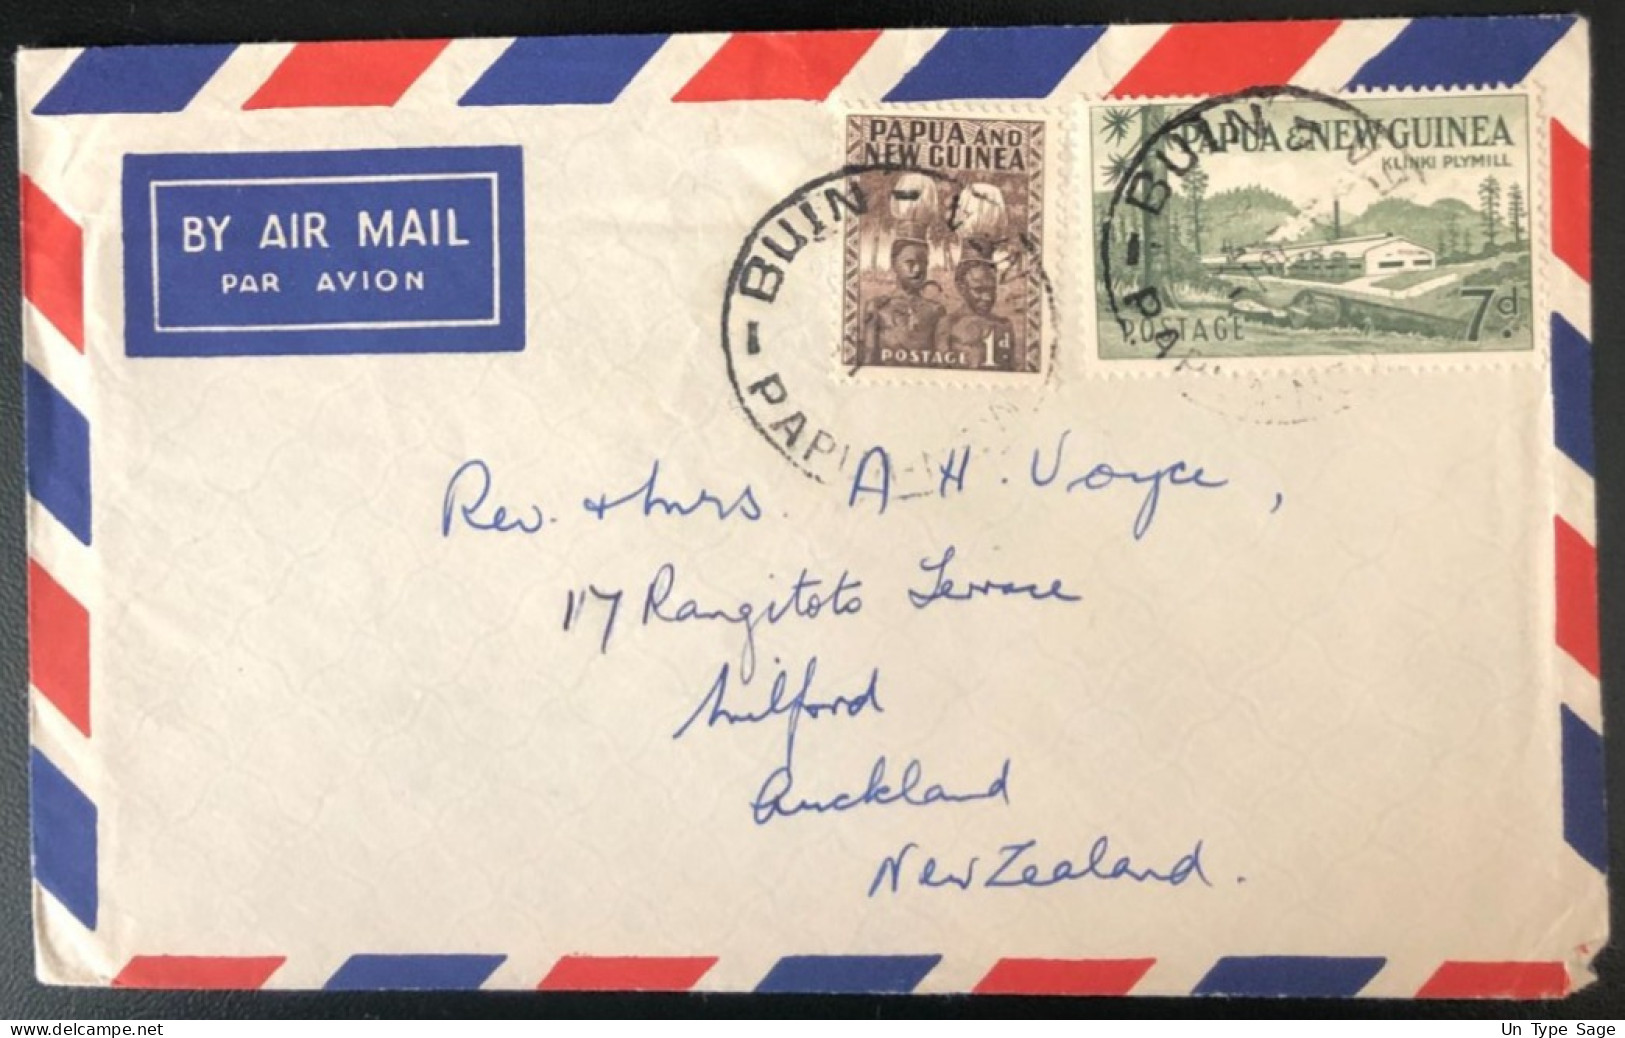 BY AIR MAIL
PAR AVION
PAPUA AND
NEW GUINEA
POSTAGE 1d.
PAPUA & NEW GUINEA
KLINKI PLYMILL
POSTAGE 7d.
BUIN
PAPUA-N
BUIN
PAP
Rev. & Mrs. A H. Voyce,
117 Rangitoto Terrace
Milford
Auckland
New Zealand.
www.delcampe.net
Un Type Sage